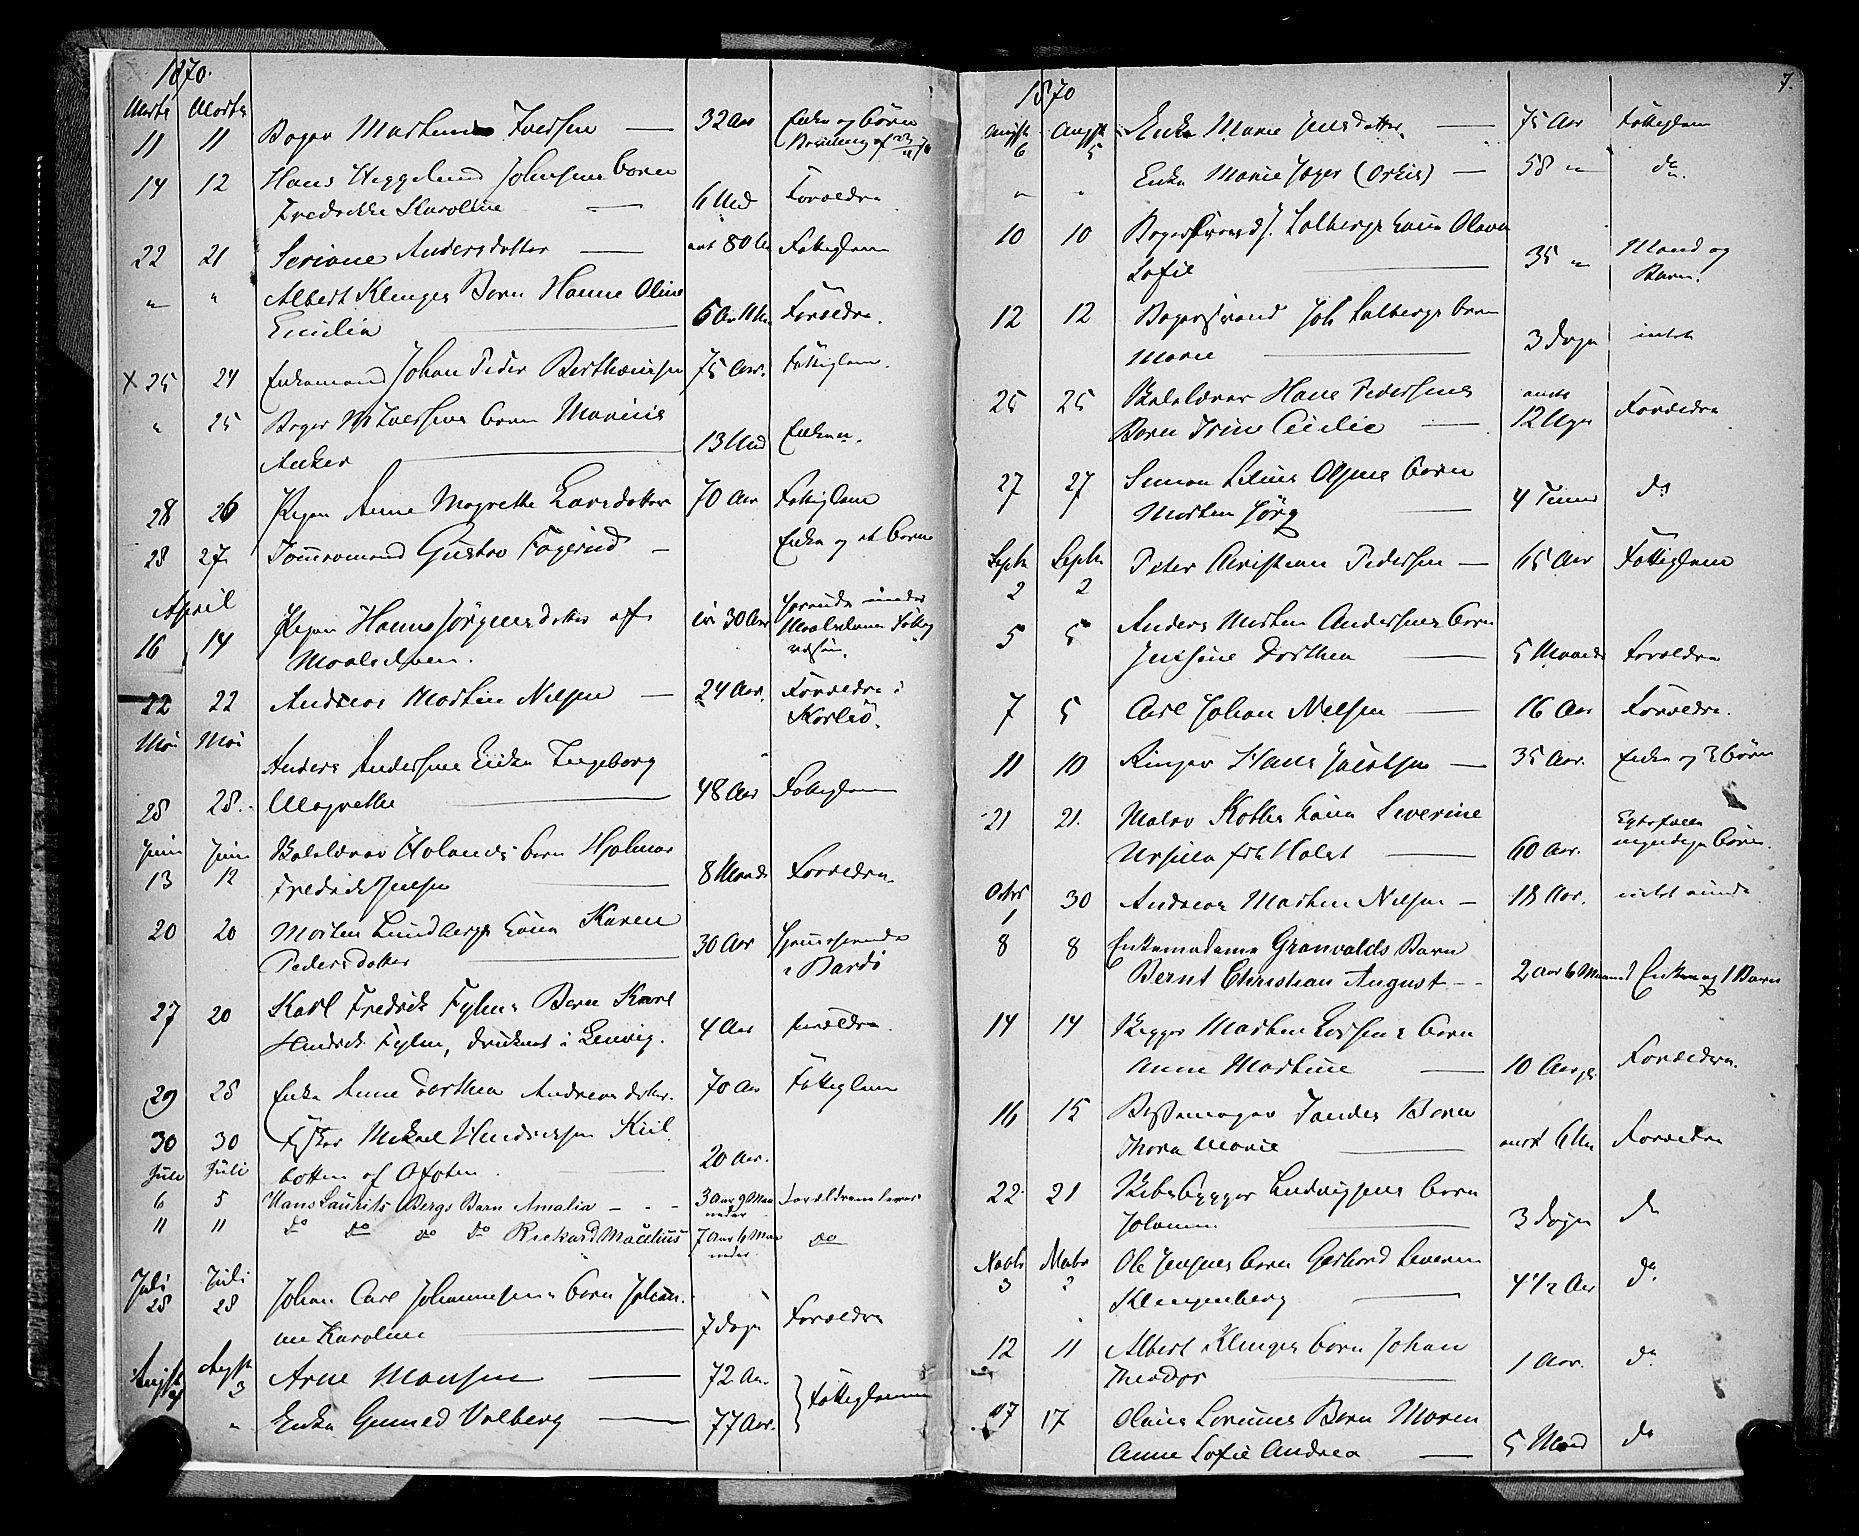 1870.
Marts Marts
11 11 Bager Martin Iversen — 32 Aar Enke og Børn
14 12 Hans Heggelund Johnsens Barn
Fredrikke Karoline — 6 Md Forældre
22 21 Seriane Andersdatter — 80 Fattiglem
" " Albert Klinges Barn Hanne Oline
Emilia — Forældre.
X 25 24 Enkemand Johan Peder 75 Aar. Fattiglem.
" 25 Bager M Iversens Barn Marius
Anker — 13 Md Enken.
28 26 Pigen Anne Magrethe Larsdatter 70 Aar Fattiglem
28 27 Tømmermand Gustav Fagerud — Enke og et Barn
April
16 14 Pigen Hanne Jørgensdatter af 30 Aar
Maalselven.
22 22 Andreas Martin Nilsen — 24 Aar. Forældre i
Karlsø.
Mai Mai
Anders Andersens Enke Ingeborg
28 28. Magrethe — 48 Aar Fattiglem
Juni Juni Barn Hjalmar
13 12 Fredrik Jensen — 8 Maaned Forældre.
20 20 Morten Lundbergs Kone Karen
Pedersdatter — 30 Aar i Bardo
27 20 Karl Fredrik Fylns Barn Karl
Hendrik Fyln, druknet i Lenvig. 4 Aar Forældre.
29 28 Enke Anne Dorthea Andreasdatter. 70 Aar Fattiglem
30 30 Fisker Mikael Hendriksen Kiil
botten af Ofoten. — 20 Aar.
Juli Juli
6 5 Hans Laurits Bergs Barn Amalia - - - 3 Aar 9 Maa
neder Forældrene lever
11 11 do do do do Rickard Maurtius 7 Aar 6 Maa
neder do
Juli Juli
28 28 Johan Carl Johannesens Barn Johan
ne Karoline — 7 Dage Forældre
August August
4 3 Arne Monsen — 72 Aar
" Enke Gunned Valberg — 77 Aar. } Fattiglemmer
1870 7.
August August
6 5 Enke Marie Jensdatter — 75 Aar Fattiglem
" " Enke Marie Jæger (Orkis) — 58 " do.
10 10 J. Solbergs Kone Olava
Sofie — 35 " Mand og
Barn.
12 12 Joh Solbergs Barn
Marie — 3 Dage intet
25 25 Hans Pedersens
Barn Trine Cecilie — 12 Uger Forældre
27 27 Simon Olsens Barn
Morten Jørg — 4 Timer do
Septr Septr
2 2 Peter Christian Pedersen — 65 Aar Fattiglem
5 5 Anders Morten Andersens Barn
Jensine Dorthea — 5 Maaned Forældre
7 5 Carl Johan Nilsen — 16 Aar Forældre.
11 10 Ringer Hans Jacobsen — 35 Aar. Enke og 3 Børn
21 21. Maler Koths Kone Severine
Ursilla født Holst — 60 Aar. Efterladte
myndige Børn.
Octbr
1 30 Andreas Martin Nilsen — 18 Aar. intet vides
8 8 Enkemadame Grønvalds Barn
Bernt Christian August - - 2 Aar 6 Maaned Enken og 1 Barn
14 14 Skipper Morten Larsens Barn
Anne Martine — 10 Aar Forældre.
16 15 Bøssemager Tandes Barn
Thora Marie — Forældre
22 21 Skibsbygger Ludvigsens Barn
Johanne — 3 Dage do
Novbr Novbr
3 2 Ole Jensens Barn Gerhard Severin
Klingenberg — 4 1/2 Aar do
12 11 Albert Klinges Barn Johan
Theodor — 1 Aar. do
17 17 Olaus Barn Maren
Anne Sofie Andrea — 5 Maaned do